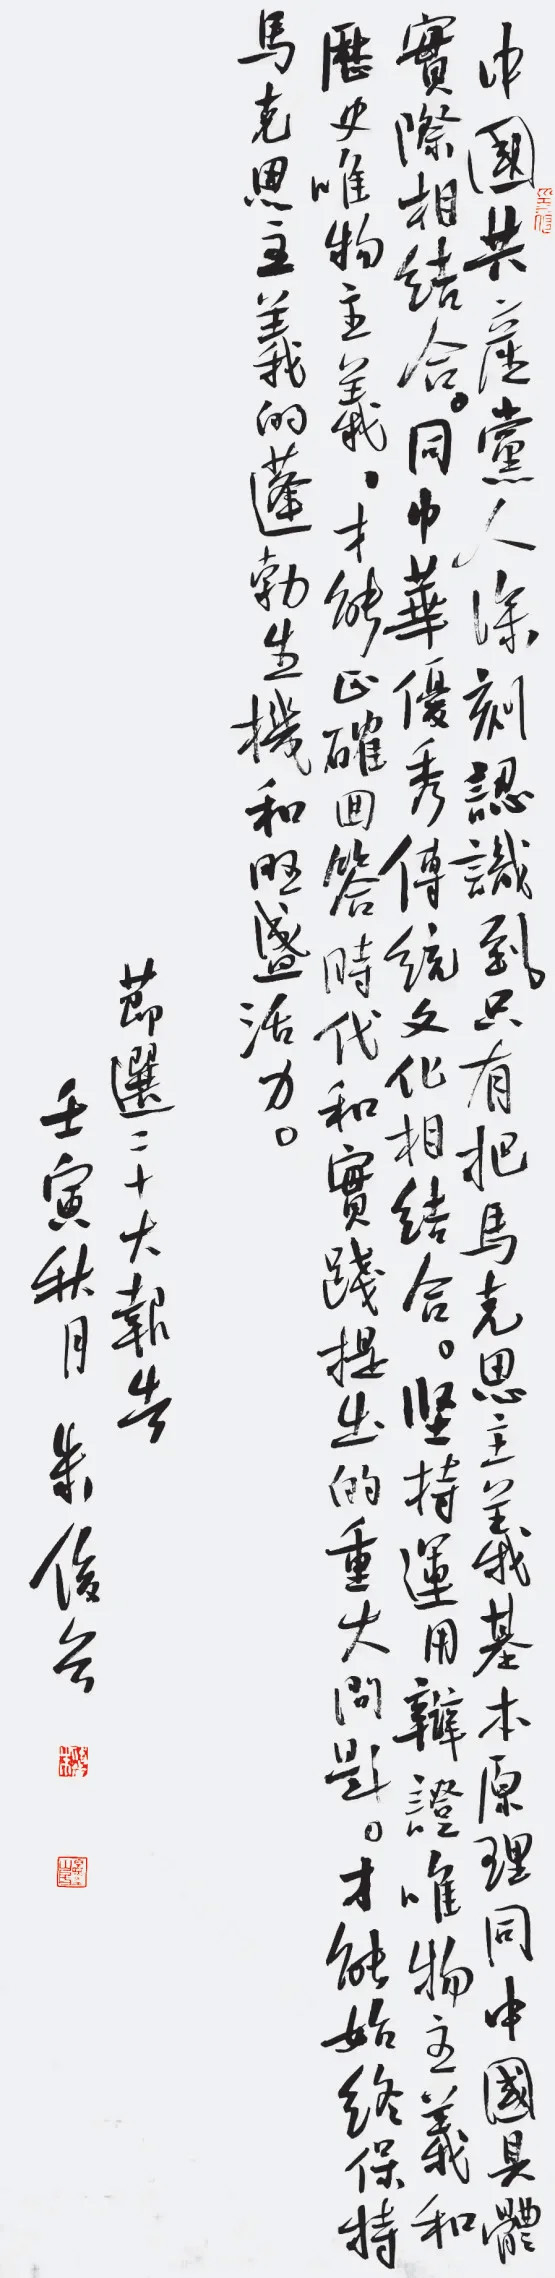 中國共產黨人深刻認識到。只有把馬克思主義基本原理同中國具體
實際相結合。同中華優秀傳統文化相結合。堅持運用辯證唯物主義和
歷史唯物主義。才能正確回答時代和實踐提出的重大問題。才能始終保持
馬克思主義的蓬勃生機和旺盛活力。
節選二十大報告
壬寅秋月 朱俊